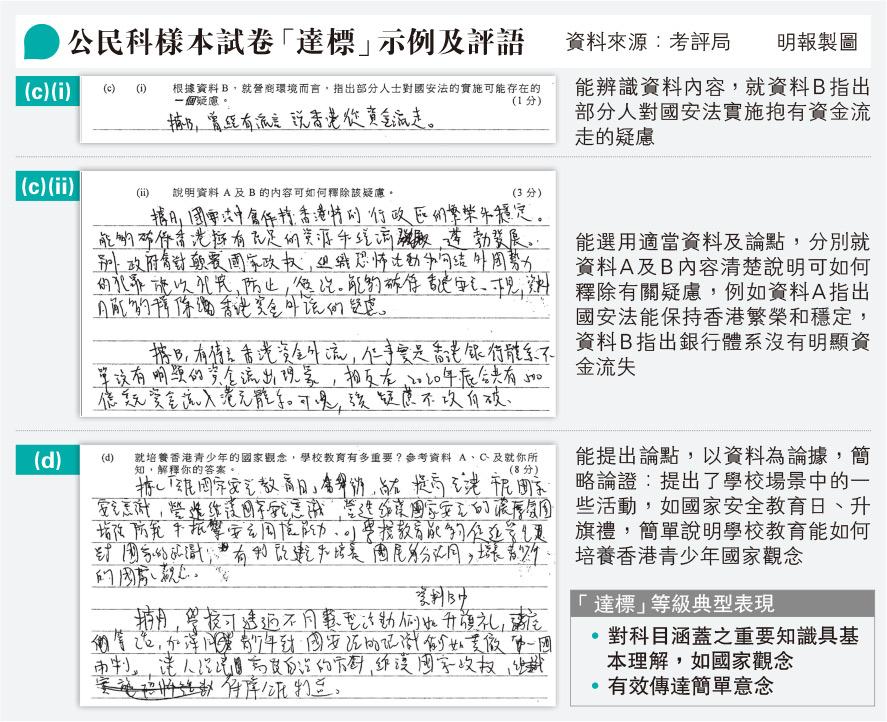 公民科樣本試卷「達標」示例及評語 資料來源：考評局 明報製圖
(c)(i)
(c) (i) 根據資料B，就營商環境而言，指出部分人士對國安法的實施可能存在的
一個疑慮。 (1 分)
據B，曾經有流言說香港從資金流走。
能辨識資料內容，就資料B指出
部分人對國安法實施抱有資金流
走的疑慮
(c)(ii)
(ii) 說明資料 A 及 B 的內容可如何釋除該疑慮。 (3 分)
國安法中會保持香港特別行政區的繁榮和穩定。
能夠確保香港擁有充足的資源和經濟蓬勃發展。
政府會對顛覆國家政權，組織恐怖活動和勾結外國勢力
的犯罪 防止，懲治。能夠確保香港安全。可見，資料
能夠釋除 香港資金外流的疑慮。
據B，有傳言香港資金外流，但事實是香港銀行體系不
單沒有明顯的資金流出現象，相反在2020年底合共有500
億美元資金流入港元體系。可見，該疑慮不攻自破。
能選用適當資料及論點，分別就
資料A及B內容清楚說明可如何
釋除有關疑慮，例如資料A指出
國安法能保持香港繁榮和穩定，
資料B指出銀行體系沒有明顯資
金流失
(d)
(d) 就培養香港青少年的國家觀念，學校教育有多重要？參考資料 A、C 及就你所
知，解釋你的答案。 (8 分)
國家安全教育日 提高全港市民國家
安全意識，營造維護國家安全 的濃厚氛圍
學校教育能夠促進學生
對國家的認識， 有利 培養國民身份認同，培養青少年
的國家觀念。
資料
學校可透過不同類型活動例如升旗禮，
青少年對國安法的認識 一國
兩制，港人治港，高度自治的方針，維護國家政權，
能提出論點，以資料為論據，簡
略論證：提出了學校場景中的一
些活動，如國家安全教育日、升
旗禮，簡單說明學校教育能如何
培養香港青少年國家觀念
「達標」等級典型表現
• 對科目涵蓋之重要知識具基
本理解，如國家觀念
• 有效傳達簡單意念